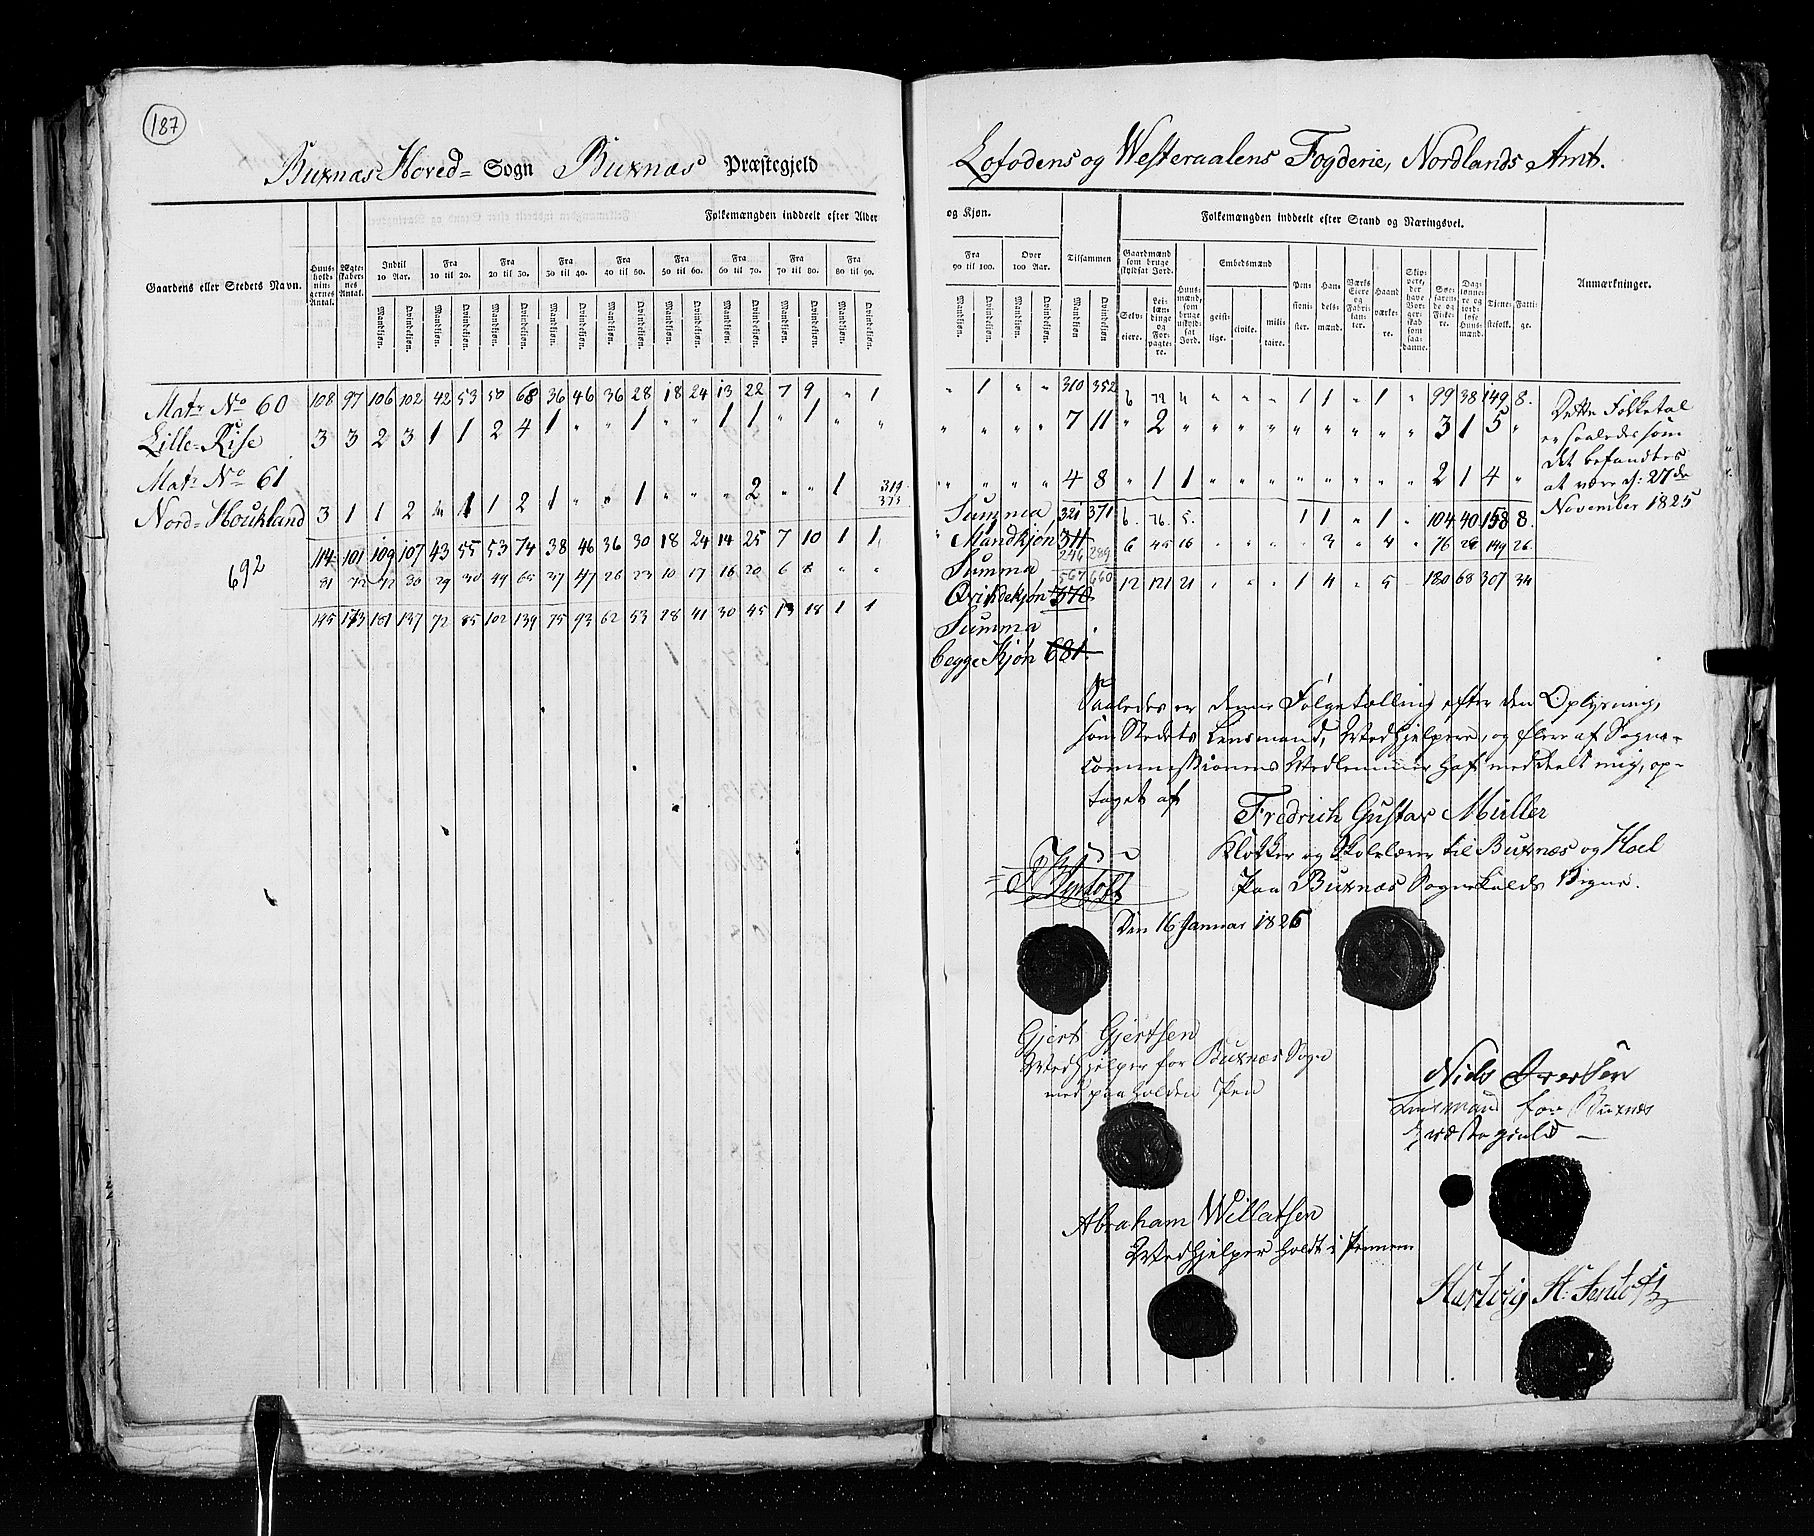 187
Buxnas Hoved= Sogn Buxnas Præstegjeld
Lofodens og Westeraalens Fogderie, Nordlands Amt.
Folkemængden inddeelt efter Alder
og Kjøn.
Folkemængden inddeelt efter Stand og Næringsvei.
Gaardens eller Stedets Navn.
Huus-holdnin-gernes Antal.
Ægte-skaber-nes Antal.
Indtil 10 Aar.
Fra 10 til 20.
Fra 20 til 30.
Fra 30 til 40.
Fra 40 til 50.
Fra 50 til 60.
Fra 60 til 70.
Fra 70 til 80.
Fra 80 til 90.
Fra 90 til 100.
Over 100 Aar.
Tilsammen
Mandkjøn. Qvindekjøn.
Gaardmænd som bruge skyldsat Jord.
Selv-eiere.
Lei-læn-dinge og For-pagte-re.
Huus-mænd, som bruge uskyld-sat Jord.
Embedsmænd
geist-lige. civile. mili-taire.
Pen-sioni-ster.
Han-dels-mænd.
Værks Eiere og Fabri-kan-ter.
Haand-værke-re.
Skip-pere, der have Bor-ger-skab som saa-danne.
Søe-faren-de og Fiske-re.
Dag-lønne-re og jord-løse Huus-mænd.
Tjene-stefolk.
Fatti-ge.
Anmærkninger.
Matr No 60 108 97 106 102 42 53 50 68 36 46 36 28 18 24 13 22 7 9 " 1 " 1 " " 310 352 6 72 4 " " " 1 1 " 1 " 99 38 149 8.
Lille-Rise 3 3 2 3 1 1 2 4 1 " " 1 " " 1 1 " 1 " " " " " " 7 11 " 2 " " " " " " " " " 3 1 5 "
Matr No 61
Nord=Houkland 3 1 1 2 " 1 1 2 1 " " 1 " " " 2 " " 1 " " " " 4 8 " 1 1 " " " " " " " " 2 1 4 "
319
373
Summa 321 371 6. 76. 5. 1 1 " 1 " 104 40 158 8.
114 101 109 107 43 55 53 74 38 46 36 30 18 24 14 25 7 10 1 1
Mandkjøn 311
246 289 6 45 16 " " " " 3 " 4 76 28 149 26.
692
Summa
567 660 12 121 21 " " " 1 4 " 5 180 68 307 34
Qvindekjøn 370
195 173 181 137 72 85 102 139 75 93 62 53 28 41 30 45 13 18 1 1
Summa
begge Kjøn 681.
Dette Folketal
er saaledes som
det befandtes
at være d: 27de
November 1825
Saaledes er denne Folgetælling efter den Oplysning,
som Stedets Lensmand, Medhjelpere, og flere af Sogne-
commissionens Medlemmer haf meddeelt mig, op-
taget af
Fredrich Gustav Müller
Klokker og Skolelærer til Buxnæs og Hoel
Paa Buxnæs Sognekalds Vegne.
Den 16 Januar 1826
Gjert Gjertsen
Medhjelper for Buxnæs Sogn
med paaholden Pen
Niels Iversen
Lensmand for Buxnæs
Præstegield
Abraham Willatsen
Medhjelper holdt i Pennen
Hartvig H: Jentoft